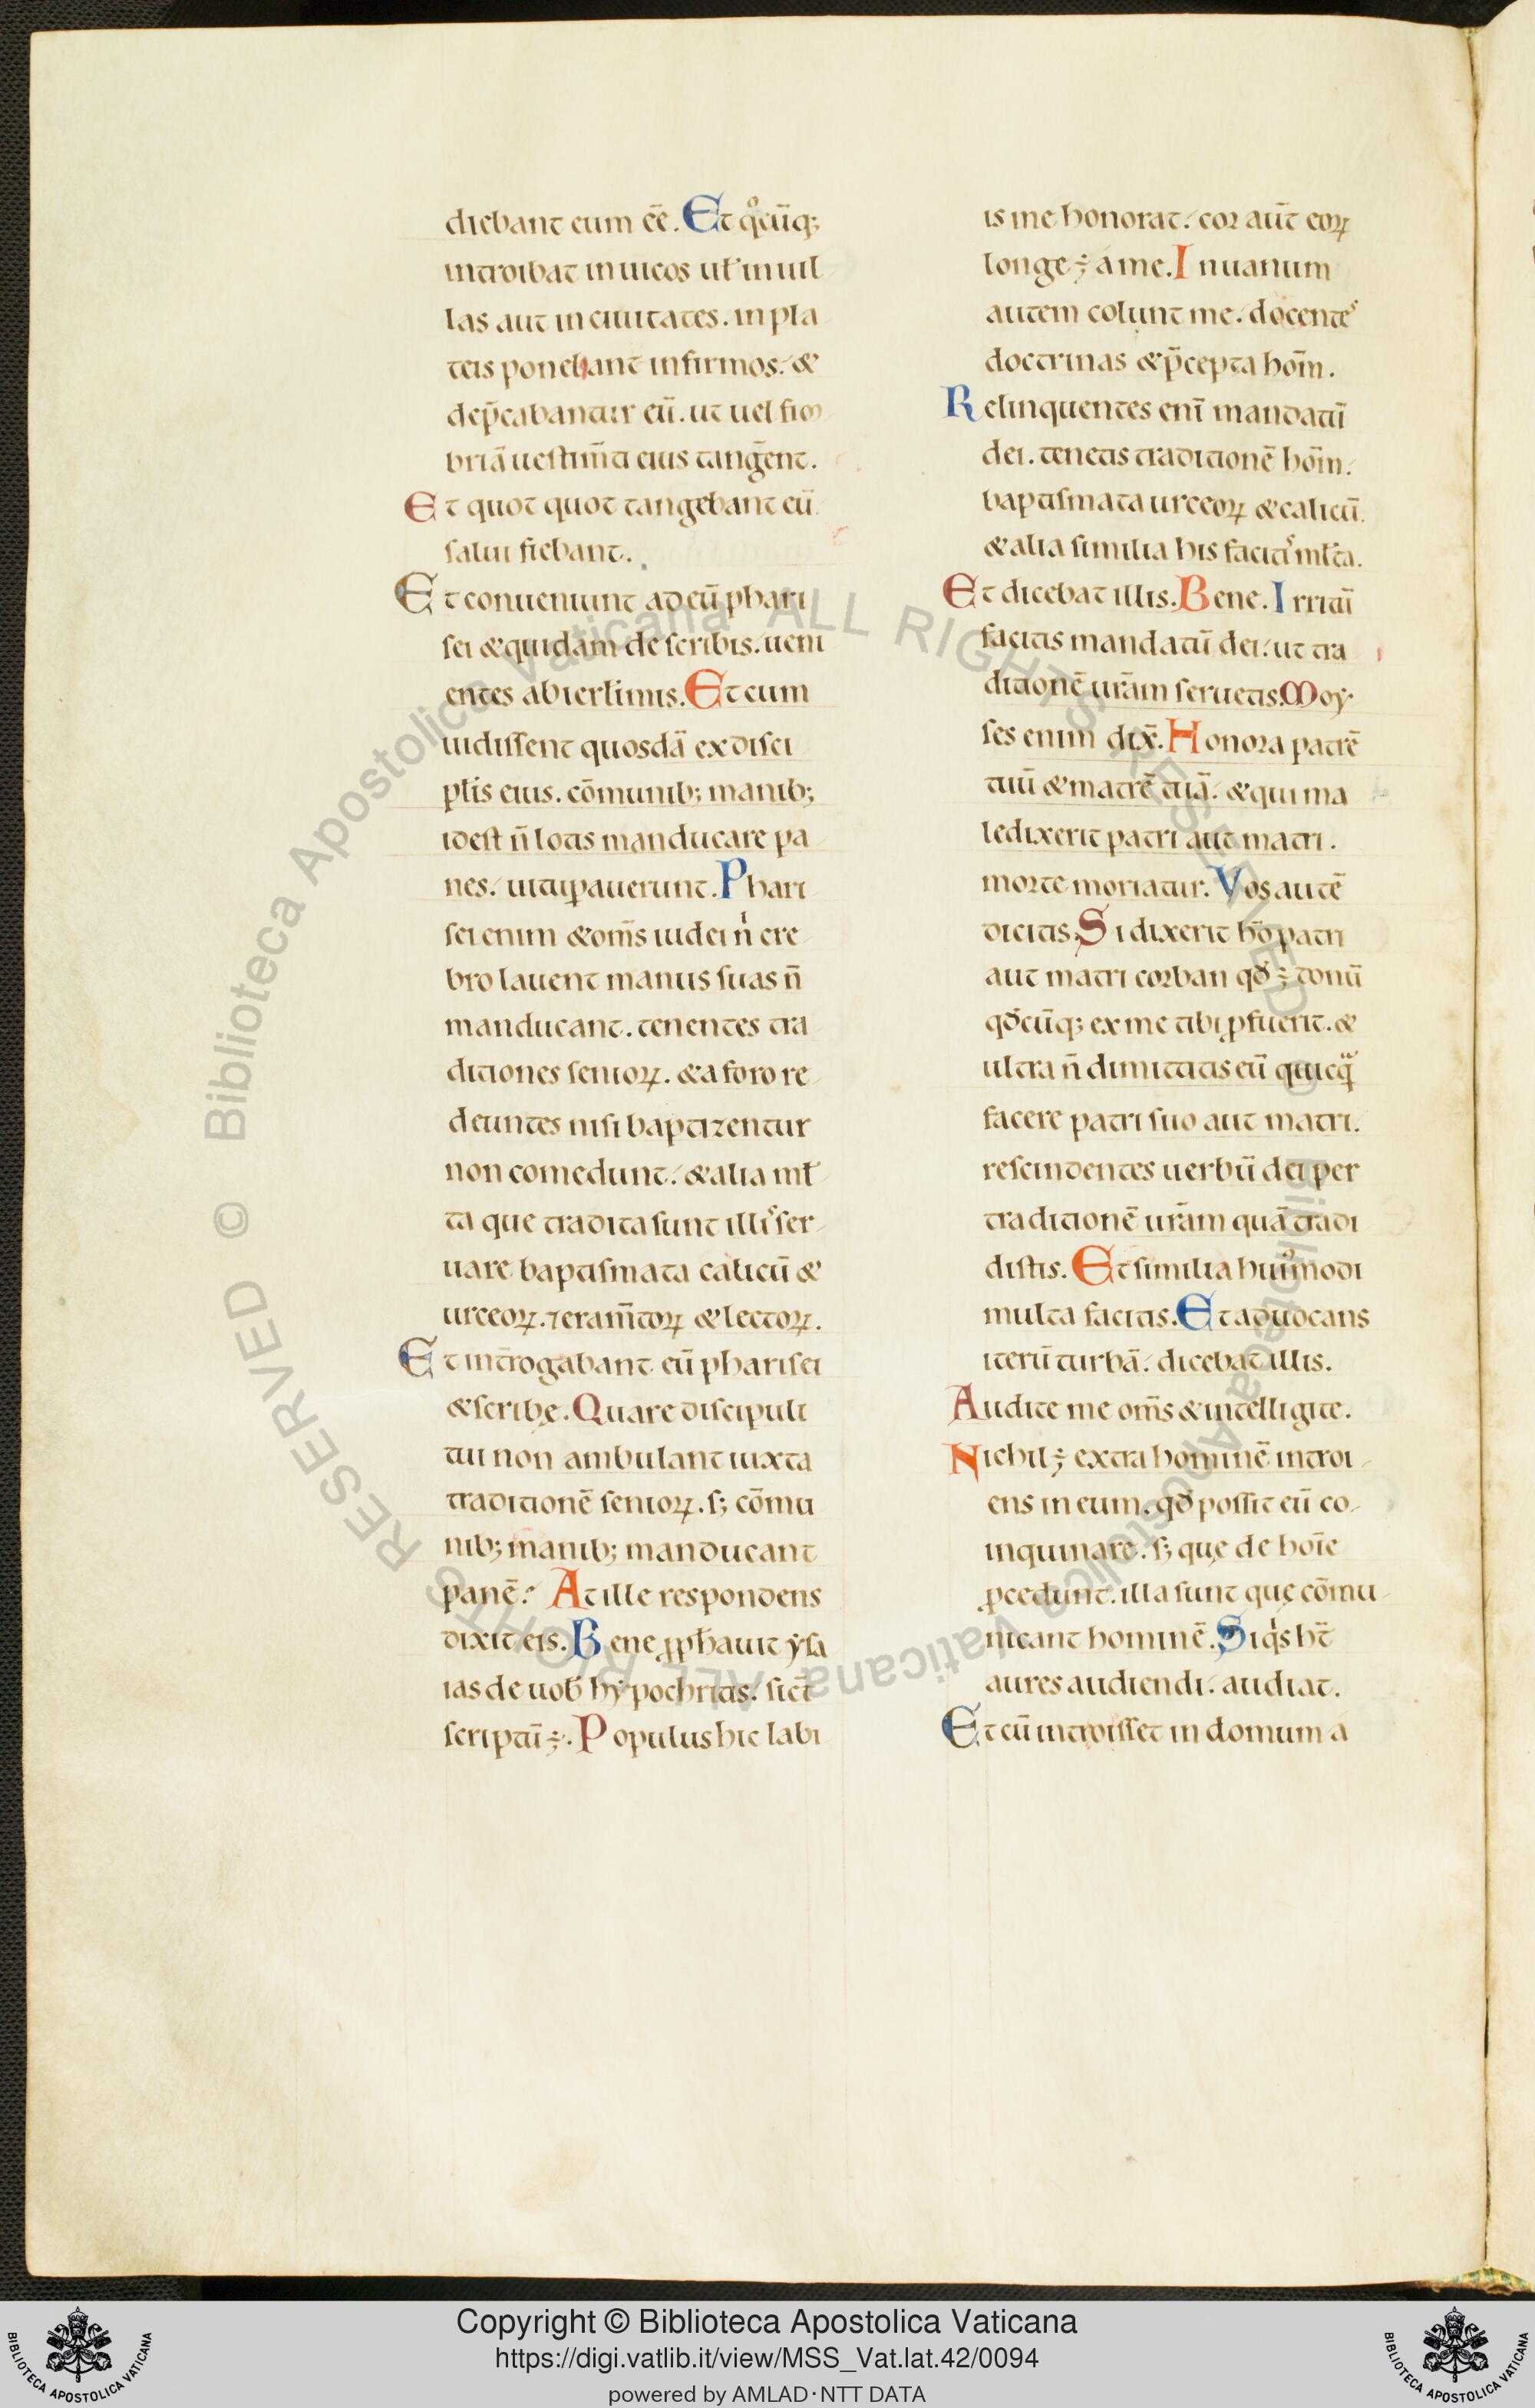 diebant eum eē. Et qͦcūq;
introibat in uicos uł in uil
las aut in ciuitates. in pla
teis ponebant infirmos. &
dep̄cabantur eū. ut uel fim
briā uestim̄ti eius tanḡent.
Et quot quot tangebant eū.
salui fiebant.
Et conueniunt ad eū phari
sei & quidam de scribis. ueni
entes ab ierlimis. Et cum
uidissent quosdā ex disci
plis eius. cōmunib; manib;
idest n̄ lotis manducare pa
nes. uitupauerunt. Phari
sei enim & om̄s iudei nͥ cre
bro lauent manus suas n̄
manducant. tenentes tra
ditiones senioꝝ. & a foro re
deuntes nisi baptizentur
non comedunt. & alia mł
ta que tradita sunt illis ser
uare baptismata calicū &
urceoꝝ. ⁊ eram̄toꝝ & lectoꝝ.
Et int̄rogabant eū pharisei
& scribę. Quare discipuli
tui non ambulant iuxta
traditionē senioꝝ. s; cōmu
nib; manib; manducant
panē? At ille respondens
dixit eis. Bene ꝓph̄auit ysa
ias de uob̄ hypochritis. sict̄
scriptū ÷. Populus hic labi
is me honorat. cor aūt eoꝝ
longe ÷ á me. In uanum
autem colunt me. docentes
doctrinas & p̄cepta hoīm.
Relinquentes enī mandatū
dei. tenetis traditionē hoīm.
baptismata urceoꝝ & calicū.
& alia similia his facitis młta.
Et dicebat illis. Bene. Irritū
facitis mandatū dei. ut tra
ditionē ur̄am seruetis. Moy
ses enim dix̄. Honora patrē
tuū & matrē tuā. & qui ma
ledixerit patri aut matri.
morte moriatur. Vos autē
dicitis. Si dixerit hō patri
aut matri corban qđ ÷ donū
qđcūq; ex me tibi ꝓfuerit. &
ultra n̄ dimittitis eū quicqͣ̄
facere patri suo aut matri.
rescindentes uerbū dei per
traditionē ur̄am quā tradi
distis. Et similia huiͦmodi
multa facitis. Et aduocans
iterū turbā. dicebat illis.
Audite me om̄s & intelligite.
Nichil ÷ extra hominē introi
ens in eum. qđ possit eū co
inquinare. s; quę de hoīe
ꝓcedunt. illa sunt quę cōmu
nicant hominē. Siqͥs ht̄
aures audiendi. audiat.
Et cū introisset in domum a
Copyright © Biblioteca Apostolica Vaticana
https://digi.vatlib.it/view/MSS_Vat.lat.42/0094
powered by AMLAD·NTT DATA
BIBLIOTECA APOSTOLICA VATICANA
BIBLIOTECA APOSTOLICA VATICANA
© Biblioteca Apostolica Vaticana ALL RIGHTS RESERVED
© Biblioteca Apostolica Vaticana ALL RIGHTS RESERVED